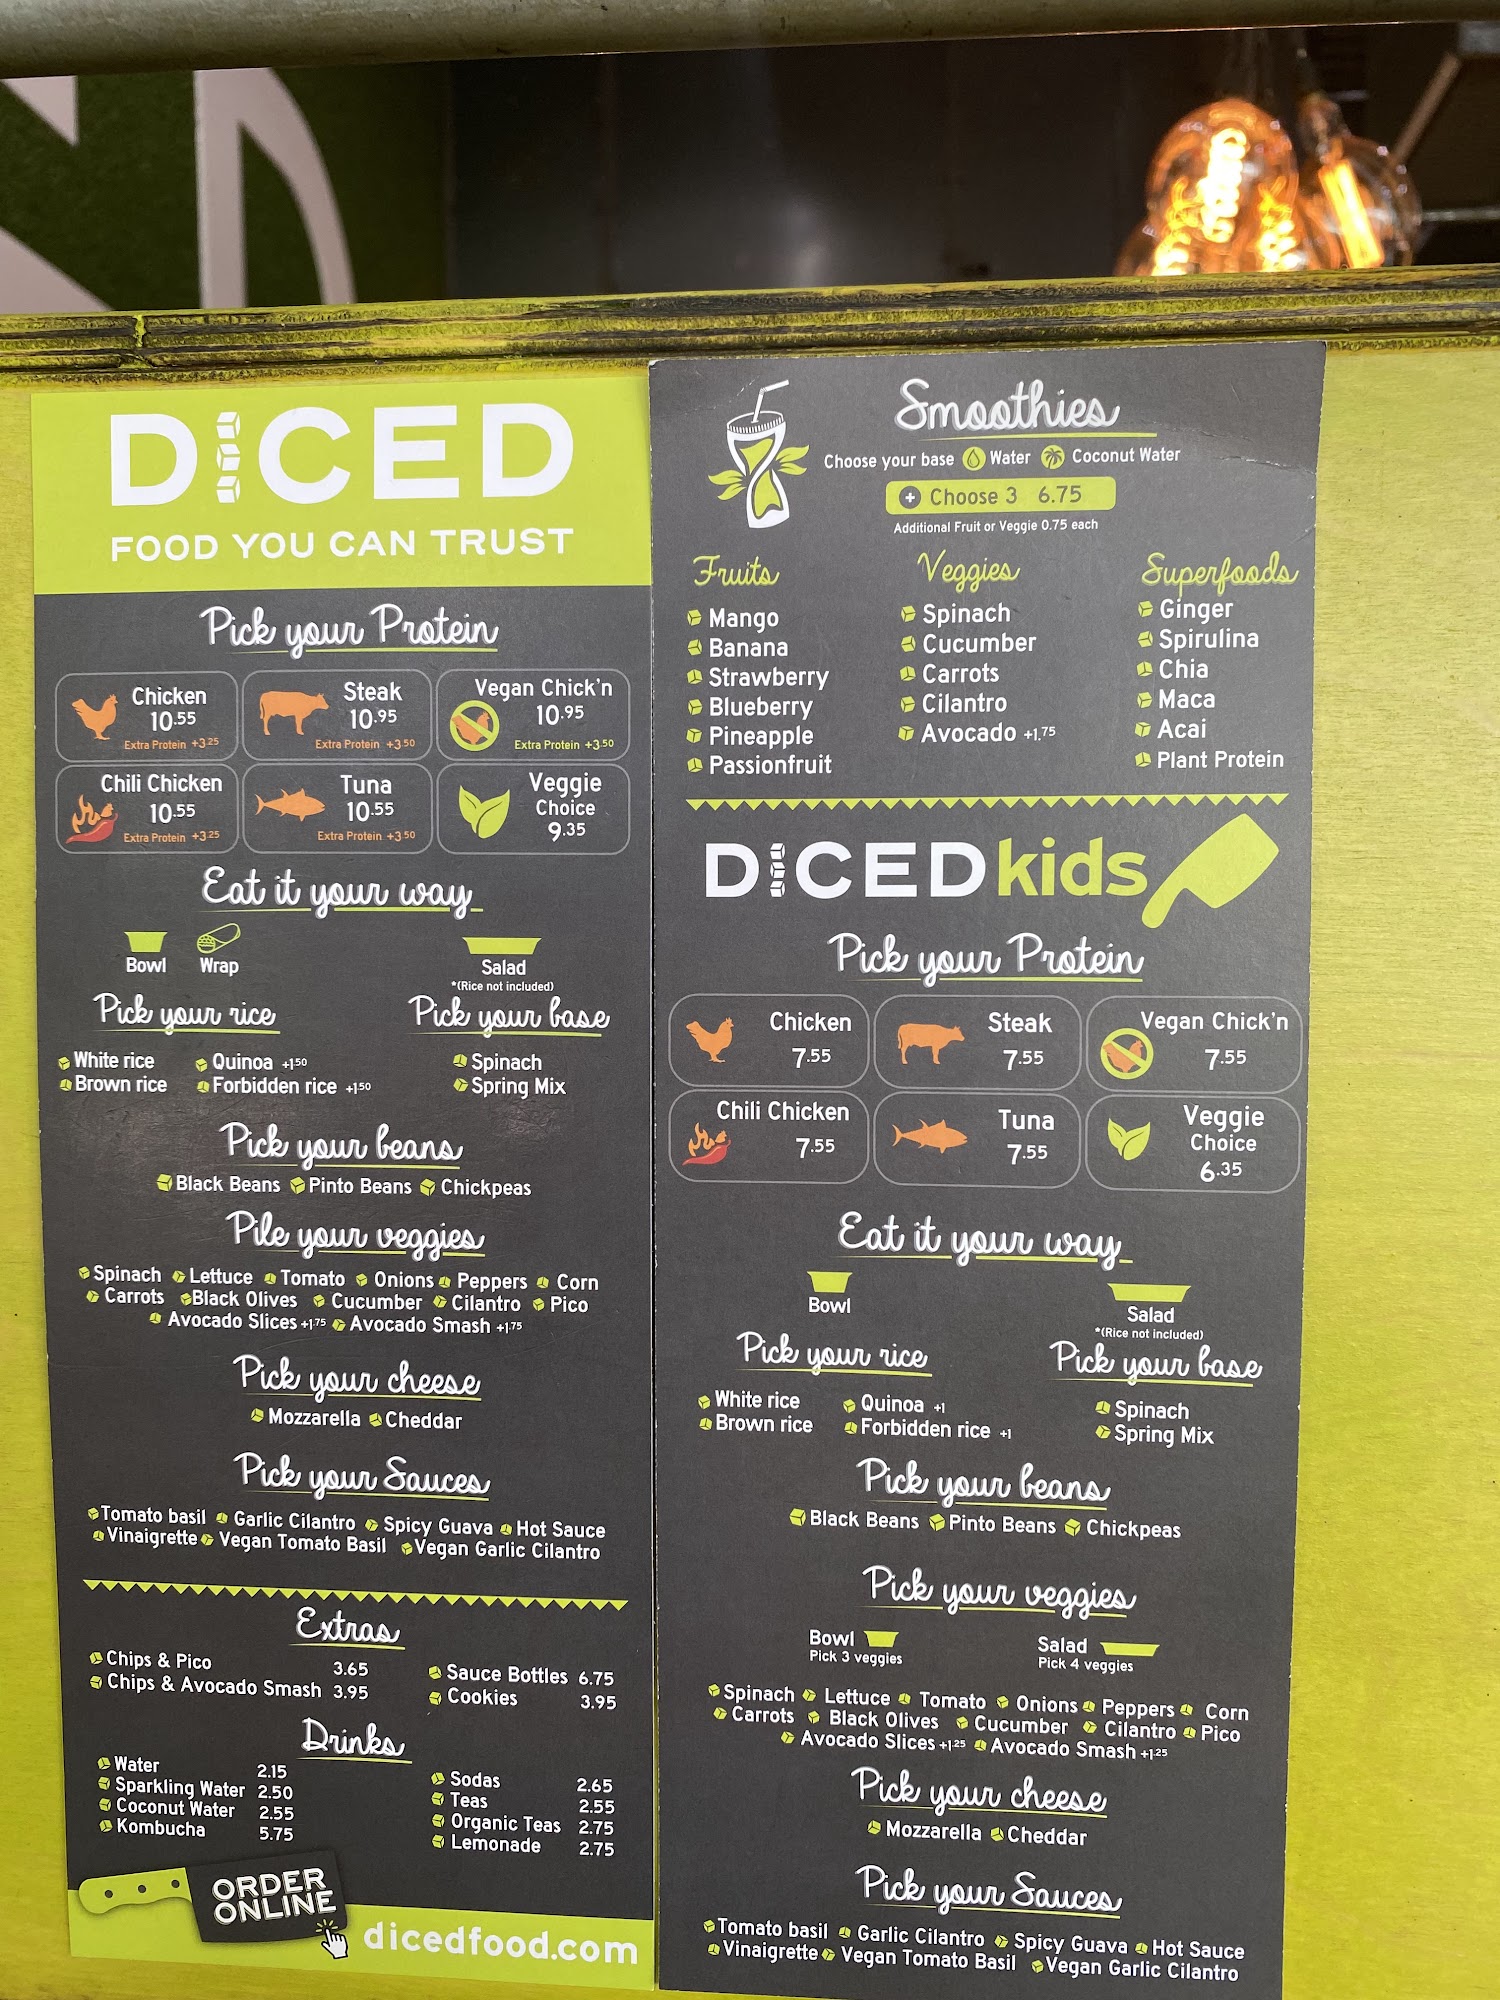 DICED
FOOD YOU CAN TRUST
Pick your Protein
Chicken
10.55
Extra Protein +3.25
Steak
10.95
Extra Protein +3.50
Vegan Chick'n
10.95
Extra Protein +3.50
Chili Chicken
10.55
Extra Protein +3.25
Tuna
10.55
Extra Protein +3.50
Veggie
Choice
9.35
Eat it your way
Bowl
Wrap
Salad
*(Rice not included)
Pick your rice
White rice
Quinoa +1.50
Brown rice
Forbidden rice +1.50
Pick your base
Spinach
Spring Mix
Pick your beans
Black Beans Pinto Beans Chickpeas
Pile your veggies
Spinach Lettuce Tomato Onions Peppers Corn
Carrots Black Olives Cucumber Cilantro Pico
Avocado Slices +1.75 Avocado Smash +1.75
Pick your cheese
Mozzarella Cheddar
Pick your Sauces
Tomato basil Garlic Cilantro Spicy Guava Hot Sauce
Vinaigrette Vegan Tomato Basil Vegan Garlic Cilantro
Extras
Chips & Pico 3.65
Chips & Avocado Smash 3.95
Sauce Bottles 6.75
Cookies 3.95
Drinks
Water 2.15
Sparkling Water 2.50
Coconut Water 2.55
Kombucha 5.75
Sodas 2.65
Teas 2.55
Organic Teas 2.75
Lemonade 2.75
ORDER
ONLINE
dicedfood.com
Smoothies
Choose your base Water Coconut Water
+ Choose 3 6.75
Additional Fruit or Veggie 0.75 each
Fruits
Mango
Banana
Strawberry
Blueberry
Pineapple
Passionfruit
Veggies
Spinach
Cucumber
Carrots
Cilantro
Avocado +1.75
Superfoods
Ginger
Spirulina
Chia
Maca
Acai
Plant Protein
DICED kids
Pick your Protein
Chicken
7.55
Steak
7.55
Vegan Chick'n
7.55
Chili Chicken
7.55
Tuna
7.55
Veggie
Choice
6.35
Eat it your way
Bowl
Salad
*(Rice not included)
Pick your rice
White rice
Quinoa +1
Brown rice
Forbidden rice +1
Pick your base
Spinach
Spring Mix
Pick your beans
Black Beans Pinto Beans Chickpeas
Pick your veggies
Bowl
Pick 3 veggies
Salad
Pick 4 veggies
Spinach Lettuce Tomato Onions Peppers Corn
Carrots Black Olives Cucumber Cilantro Pico
Avocado Slices +1.25 Avocado Smash +1.25
Pick your cheese
Mozzarella Cheddar
Pick your Sauces
Tomato basil Garlic Cilantro Spicy Guava Hot Sauce
Vinaigrette Vegan Tomato Basil Vegan Garlic Cilantro